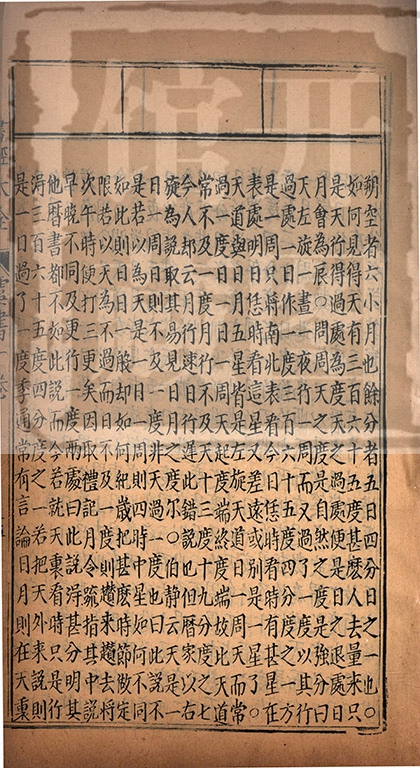 朔空者六小月也餘分者五日四分日之一也〇
如何見得天有三百六十五度甚麼人去量來只
是天行得過處為度天之過處便是日之退處日
月會為辰〇問周天之度是自然之度是強分曰
天左旋一晝一夜行一周而又過了一度以其行
過處一日作一度三百六十五度四分度之一方
是一周只將南北表看今日恁時看時有甚星在
表處明日恁時看這星又差遠或別是一星了〇
天道與日月五星皆是左旋天道日一周天而常
過一度日亦一周天起度端終度端故比天道
常不及一度月行不及天十三度十九分度之七
今人却云月行速日行遲此錯說也但曆家以右
旋為說取其易見日月之度爾〇伯静云天是一
日一周日則不及一度非天過一度也曰此說不
是若以為天是一日一周則四時中星如何不同
如此則日日一般却如何紀歲把甚麽時節做定
限若以天為不過而日不及一度則趲來趲去將
次午時便打三更矣因取禮記月令疏指其中說
早晚不同及更行一度兩處曰此說得甚分明其
他曆書都不如此說而今若就天裏看時只是行
得三百六十五度四分度之一若把天外來說則
是一日過了一度季通常有言論日月則在天裏
書經大全 虞書一卷